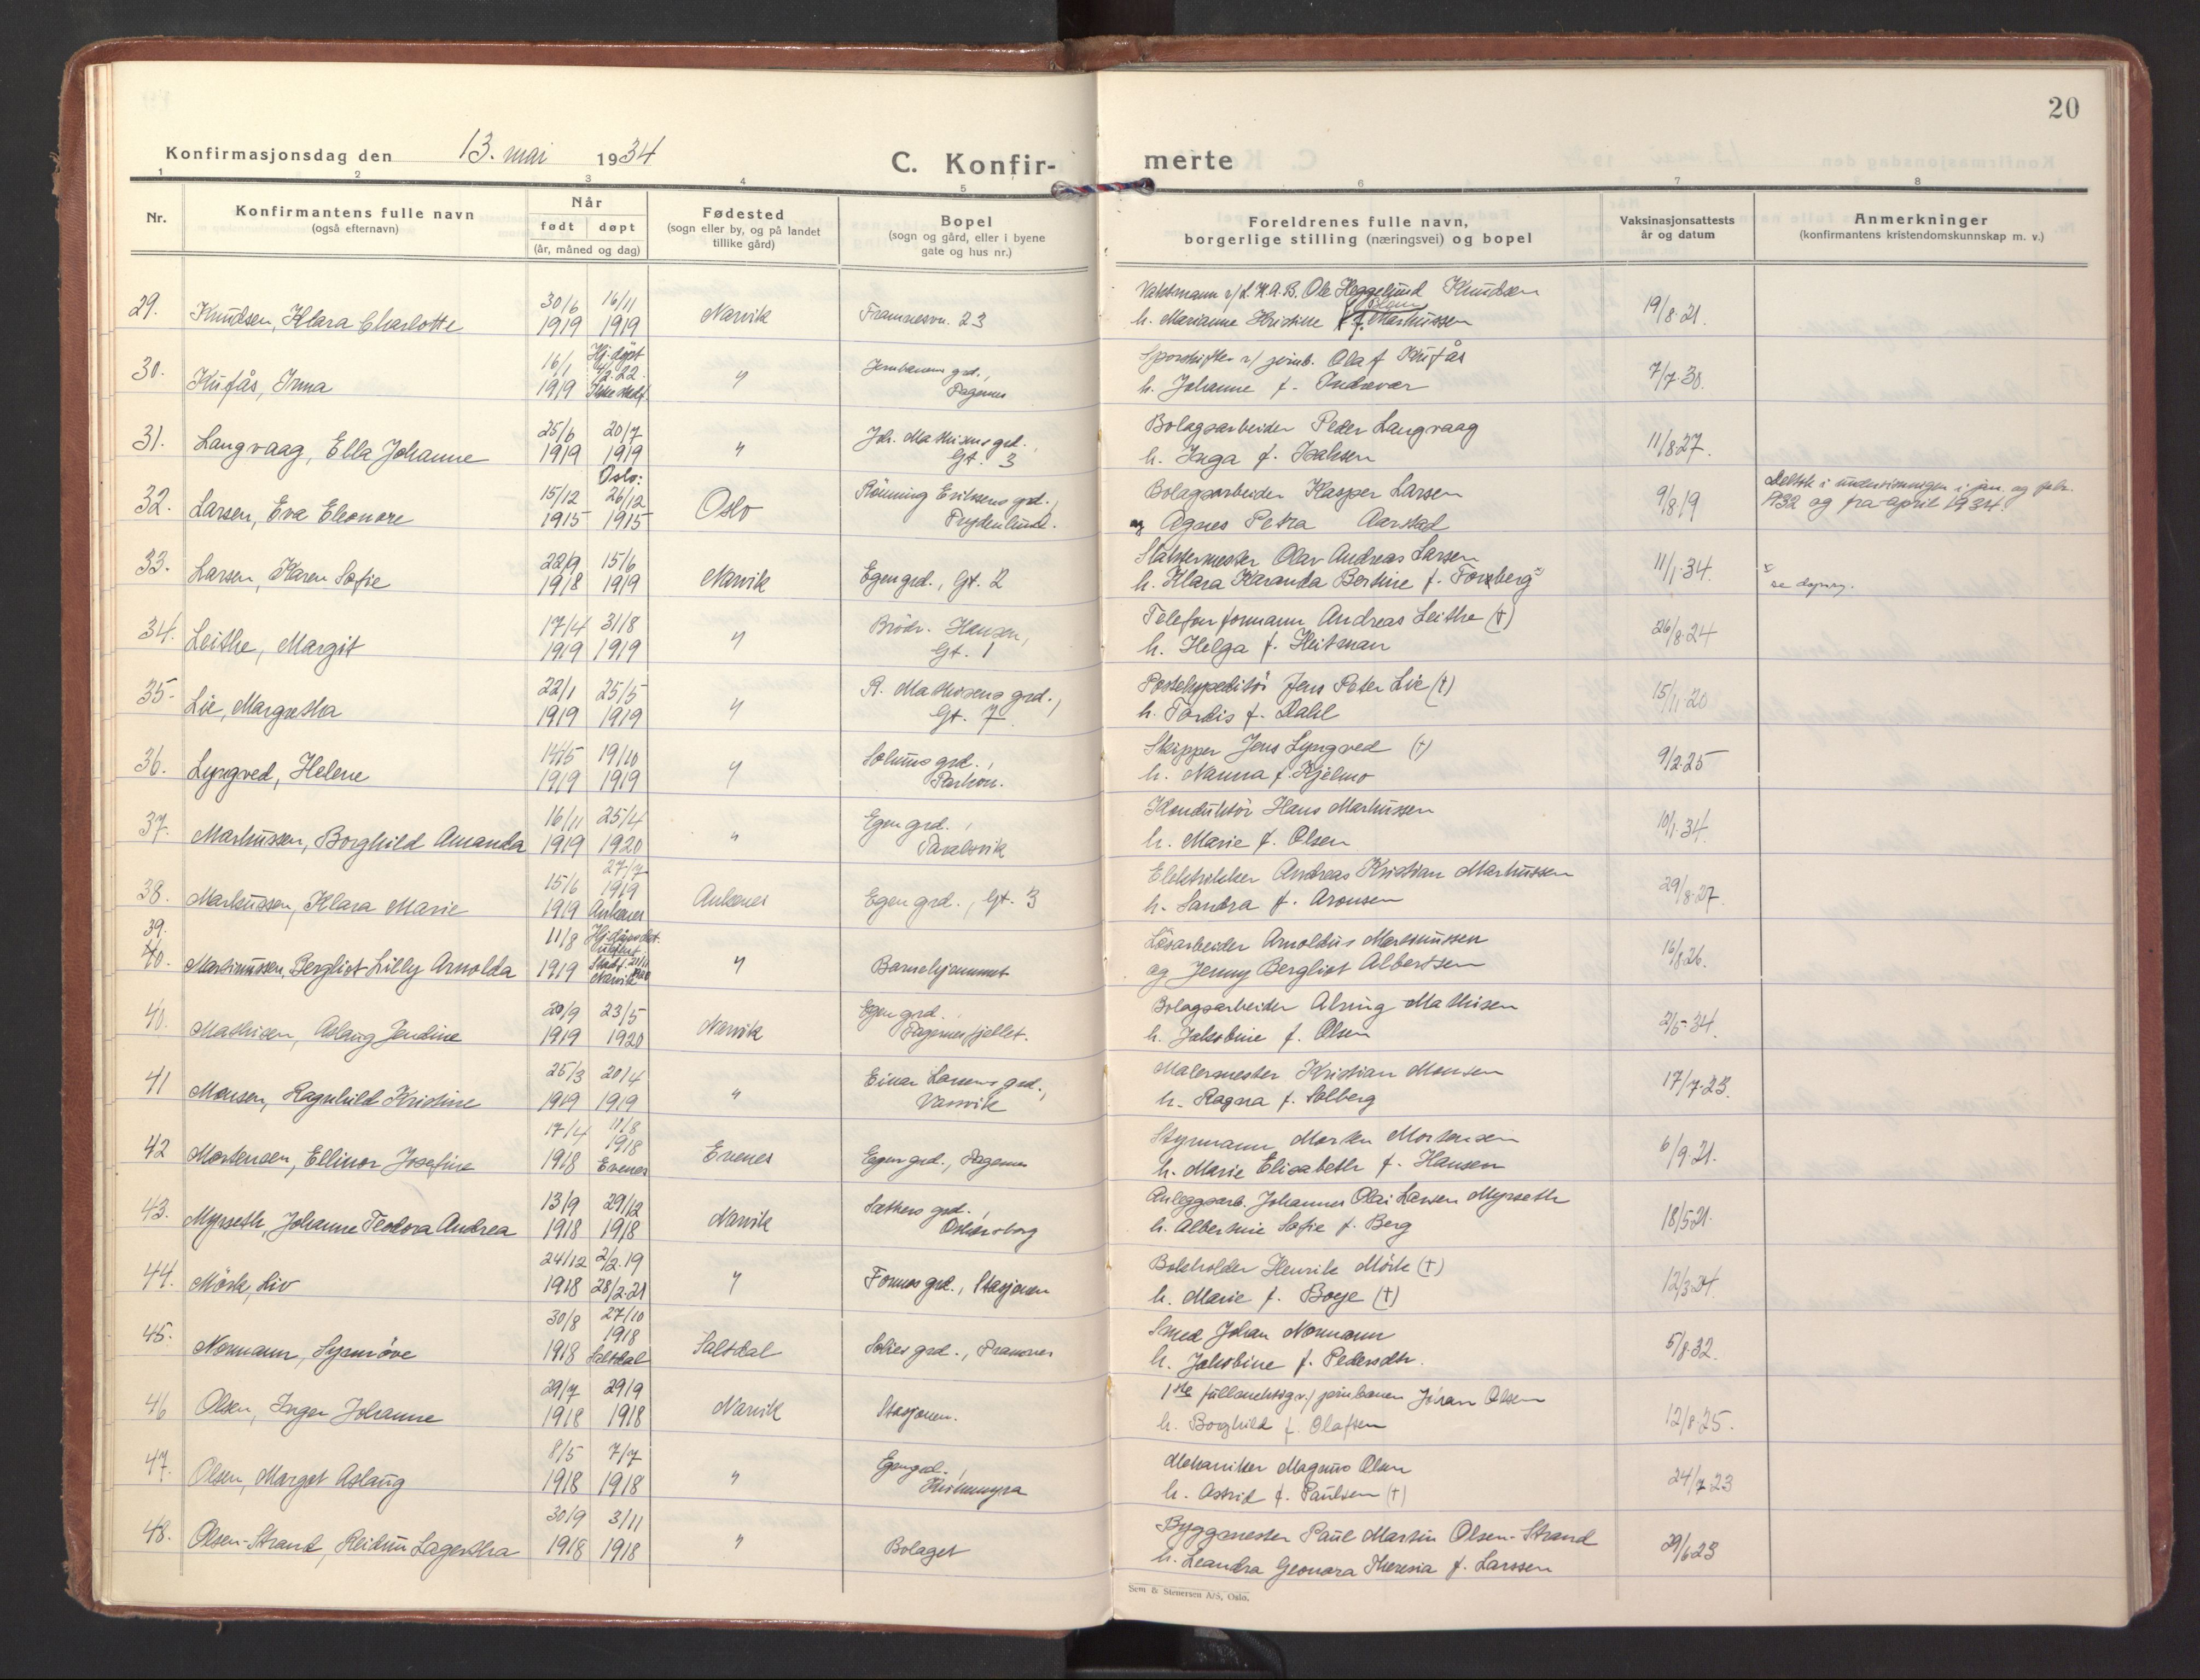 20
Konfirmasjonsdag den 13. mai 1934
C. Konfir-
merte
1 2 3 4 5 6 7 8
Nr.
Konfirmantens fulle navn
(også efternavn)
Når
født døpt
(år, måned og dag)
Fødested
(sogn eller by, og på landet
tillike gård)
Bopel
(sogn og gård, eller i byene
gate og hus nr.)
Foreldrenes fulle navn,
borgerlige stilling (næringsvei) og bopel
Vaksinasjonsattests
år og datum
Anmerkninger
(konfirmantens kristendomskunnskap m. v.)
29. 30/6 16/11 Vaktmann v/ L.K.A.B. Ole Heggelund Knudsen
Knudsen, Klara Charlotte 1919 1919 Narvik Framnesvn. 23 h. Marianne Kristine f. Markussen 19/8.21.
30. 16/1 Hj.døpt 4/2.22. Jernbanens grd., Sporskifter v/ jernb. Olaf Kufås
Kufås, Irma 1919 Ikke stadf. " Fagernes h. Johanne f. Indrevær 7/7.30.
31. 25/6 20/7 Joh. Mathisens grd., Bolagsarbeider Peder Langvaag
Langvaag, Ella Johanne 1919 1919 " Gt. 3 h. Inga f. Isaksen 11/8.27.
32. 15/12 Oslo: 26/12 Rönning Eriksens grd., Bolagsarbeider Kasper Larsen Deltok i undervisningen i jan. og febr.
Larsen, Eva Eleonore 1915 1915 Oslo Frydenlund. og Agnes Petra Aarstad 9/8 19 1932 og fra april 1934.
33. 22/9 15/6 Slaktermester Olav Andreas Larsen
Larsen, Karen Sofie 1918 1919 Narvik Egen grd., Gt. 2 h. Klara Karanda Bertine f. Forsberg x) 11/1.34. x se dåpsreg.
34. 17/4 31/8 Brödr. Hansen, Telefonformann Andreas Leithe (†)
Leithe, Margit 1919 1919 " Gt. 1 h. Helga f. Heitman 26/8.24
35. 22/1 25/5 R. Mathisens grd., Postekspeditör Jens Peter Lie (†)
Lie, Margretha 1919 1919 " Gt. 7. h. Tordis f. Dahl 15/11.20
36. 14/5 19/10 Solums grd., Skipper Jens Lyngved (†)
Lyngved, Helene 1919 1919 " Parken. h. Nanna f. Kjelmo 9/2.25
37. 16/11 25/4 Egen grd., Konduktör Hans Markussen
Markussen, Borghild Amanda 1919 1920 " Taraldsvik h. Marie f. Olsen 10/1.34.
38. 15/6 27/7 1919 Elektrikker Andreas Kristian Markussen
Markussen, Klara Marie 1919 Ankenes Ankenes Egen grd., Gt. 3 h. Sandra f. Aronsen 29/8.27.
39. 40. 11/8 Hj.döpt Lösarbeider Arnoldus Martinussen
Martinussen, Bergliot Lilly Arnolda 1919 Stadf. Narvik " Barnehjemmet og Jenny Bergliot Albertsen 16/8.26.
40. 20/9 23/5 Egen grd., Bolagsarbeider Alming Mathisen
Mathisen, Aslaug Jendine 1919 1920 Narvik Fagernesfjellet. h. Jakobine f. Olsen 2/5.34.
41 25/3 20/4 Einar Larsens grd., Malermester Kristian Monsen
Monsen, Ragnhild Kristine 1919 1919 " Vassvik h. Ragna f. Solberg 17/7.23.
42 17/4 11/8 1918 Styrmann Morten Mortensen
Mortensen, Ellinor Josefine 1918 Evenes Evenes Egen grd., Fagernes h. Marie Elisabeth f. Hansen 6/9.21.
43. 13/9 29/12 Sæthers grd., Anleggsarb. Johannes Olai Larsen Myrseth
Myrseth, Johanne Teodora Andrea 1918 1918 Narvik Oskarsborg h. Albertine Sofie f. Berg 18/5 21.
44. 24/12 2/2.19 Bokholder Henrik Mörk (†)
Mörk, Liv 1918 28/2.21 " Fornes grd., Stasjonen h. Marie f. Boye (†) 12/3.24.
45. 30/8 27/10 1918 Smed Johan Normann
Normann, Synnöve 1918 Saltdal Saltdal Solies grd., Framnes h. Jakobine f. Pedersdtr. 5/8.32.
46 29/7 29/9 1ste fullmektig v/ jernbanen Jöran Olsen
Olsen, Inger Johanne 1918 1918 Narvik Stasjonen. h. Borghild f. Olafsen 12/8.25.
47. 8/5 7/7 Egen grd., Mekaniker Magnus Olsen
Olsen, Margot Aslaug 1918 1918 " h. Astrid f. Paulsen (†) 24/7.23
48. 30/9 3/11 Byggmester Paul Martin Olsen-Strand
Olsen-Strand, Reidun Lagertha 1918 1918 " Bolaget h. Leandra Geonora Theresia f. Larssen 29/6 23
Sem & Stenersen A/S, Oslo.